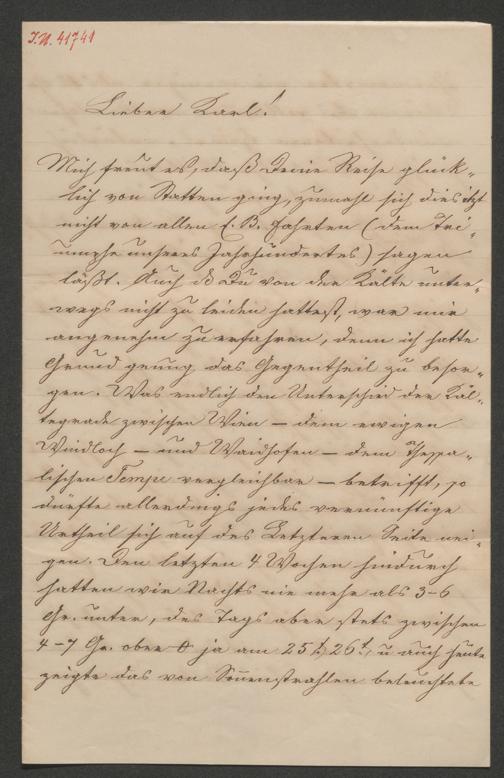 I.N. 41741
Lieber Karl!
Mich freut es, daß Deine Reise glück-
lich von Statten ging, zumahl sich dies itzt
nicht von allen E. B. Fahrten (dem Tri-
umphe unseres Jahrhundertes) sagen
läßt. Auch daß Du von der Kälte unter-
wegs nicht zu leiden hattest, war mir
angenehm zu erfahren, denn ich hatte
Grund genug das Gegentheil zu besor-
gen. Was endlich den Unterschied der Käl-
tegrade zwischen Wien – dem ewigen
Windloch – und Waidhofen – dem Thessa-
lischen Tempe vergleichbar – betrifft, so
dürfte allerdings jedes vernünftige
Urtheil sich auf des Letzteren Seite nei-
gen. Den letzten 4 Wochen hindurch
hatten wir Nachts nie mehr als 3–6
Gr. unter, des Tags aber stets zwischen
4–7 Gr. ober 0 ja am 25t, 26t, u auch heute
zeigte das von Sonnenstrahlen beleuchtete